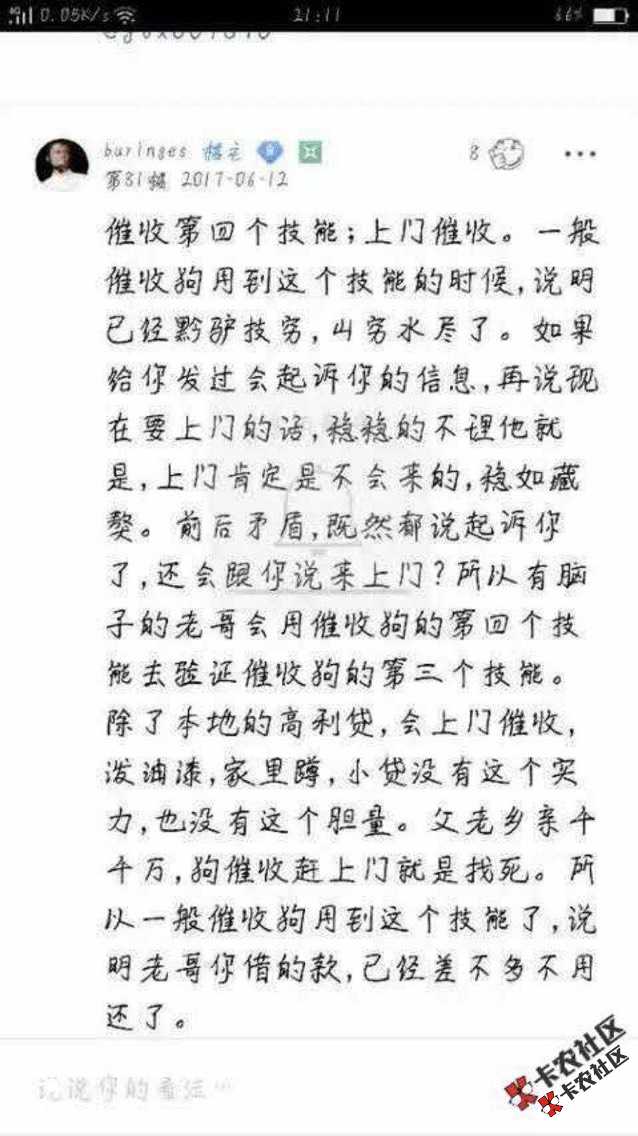 0.05K/s
21:11
66%
buringes 楼主
8
第31楼 2017-06-12
催收第四个技能;上门催收。一般
催收狗用到这个技能的时候,说明
已经黔驴技穷,山穷水尽了。如果
给你发过会起诉你的信息,再说现
在要上门的话,稳稳的不理他就
是,上门肯定是不会来的,稳如藏
獒。前后矛盾,既然都说起诉你
了,还会跟你说来上门?所以有脑
子的老哥会用催收狗的第四个技
能去验证催收狗的第三个技能。
除了本地的高利贷,会上门催收,
泼油漆,家里蹲,小贷没有这个实
力,也没有这个胆量。父老乡亲千
千万,狗催收赶上门就是找死。所
以一般催收狗用到这个技能了,说
明老哥你借的款,已经差不多不用
还了。
说说你的看法…
卡农社区
卡农社区